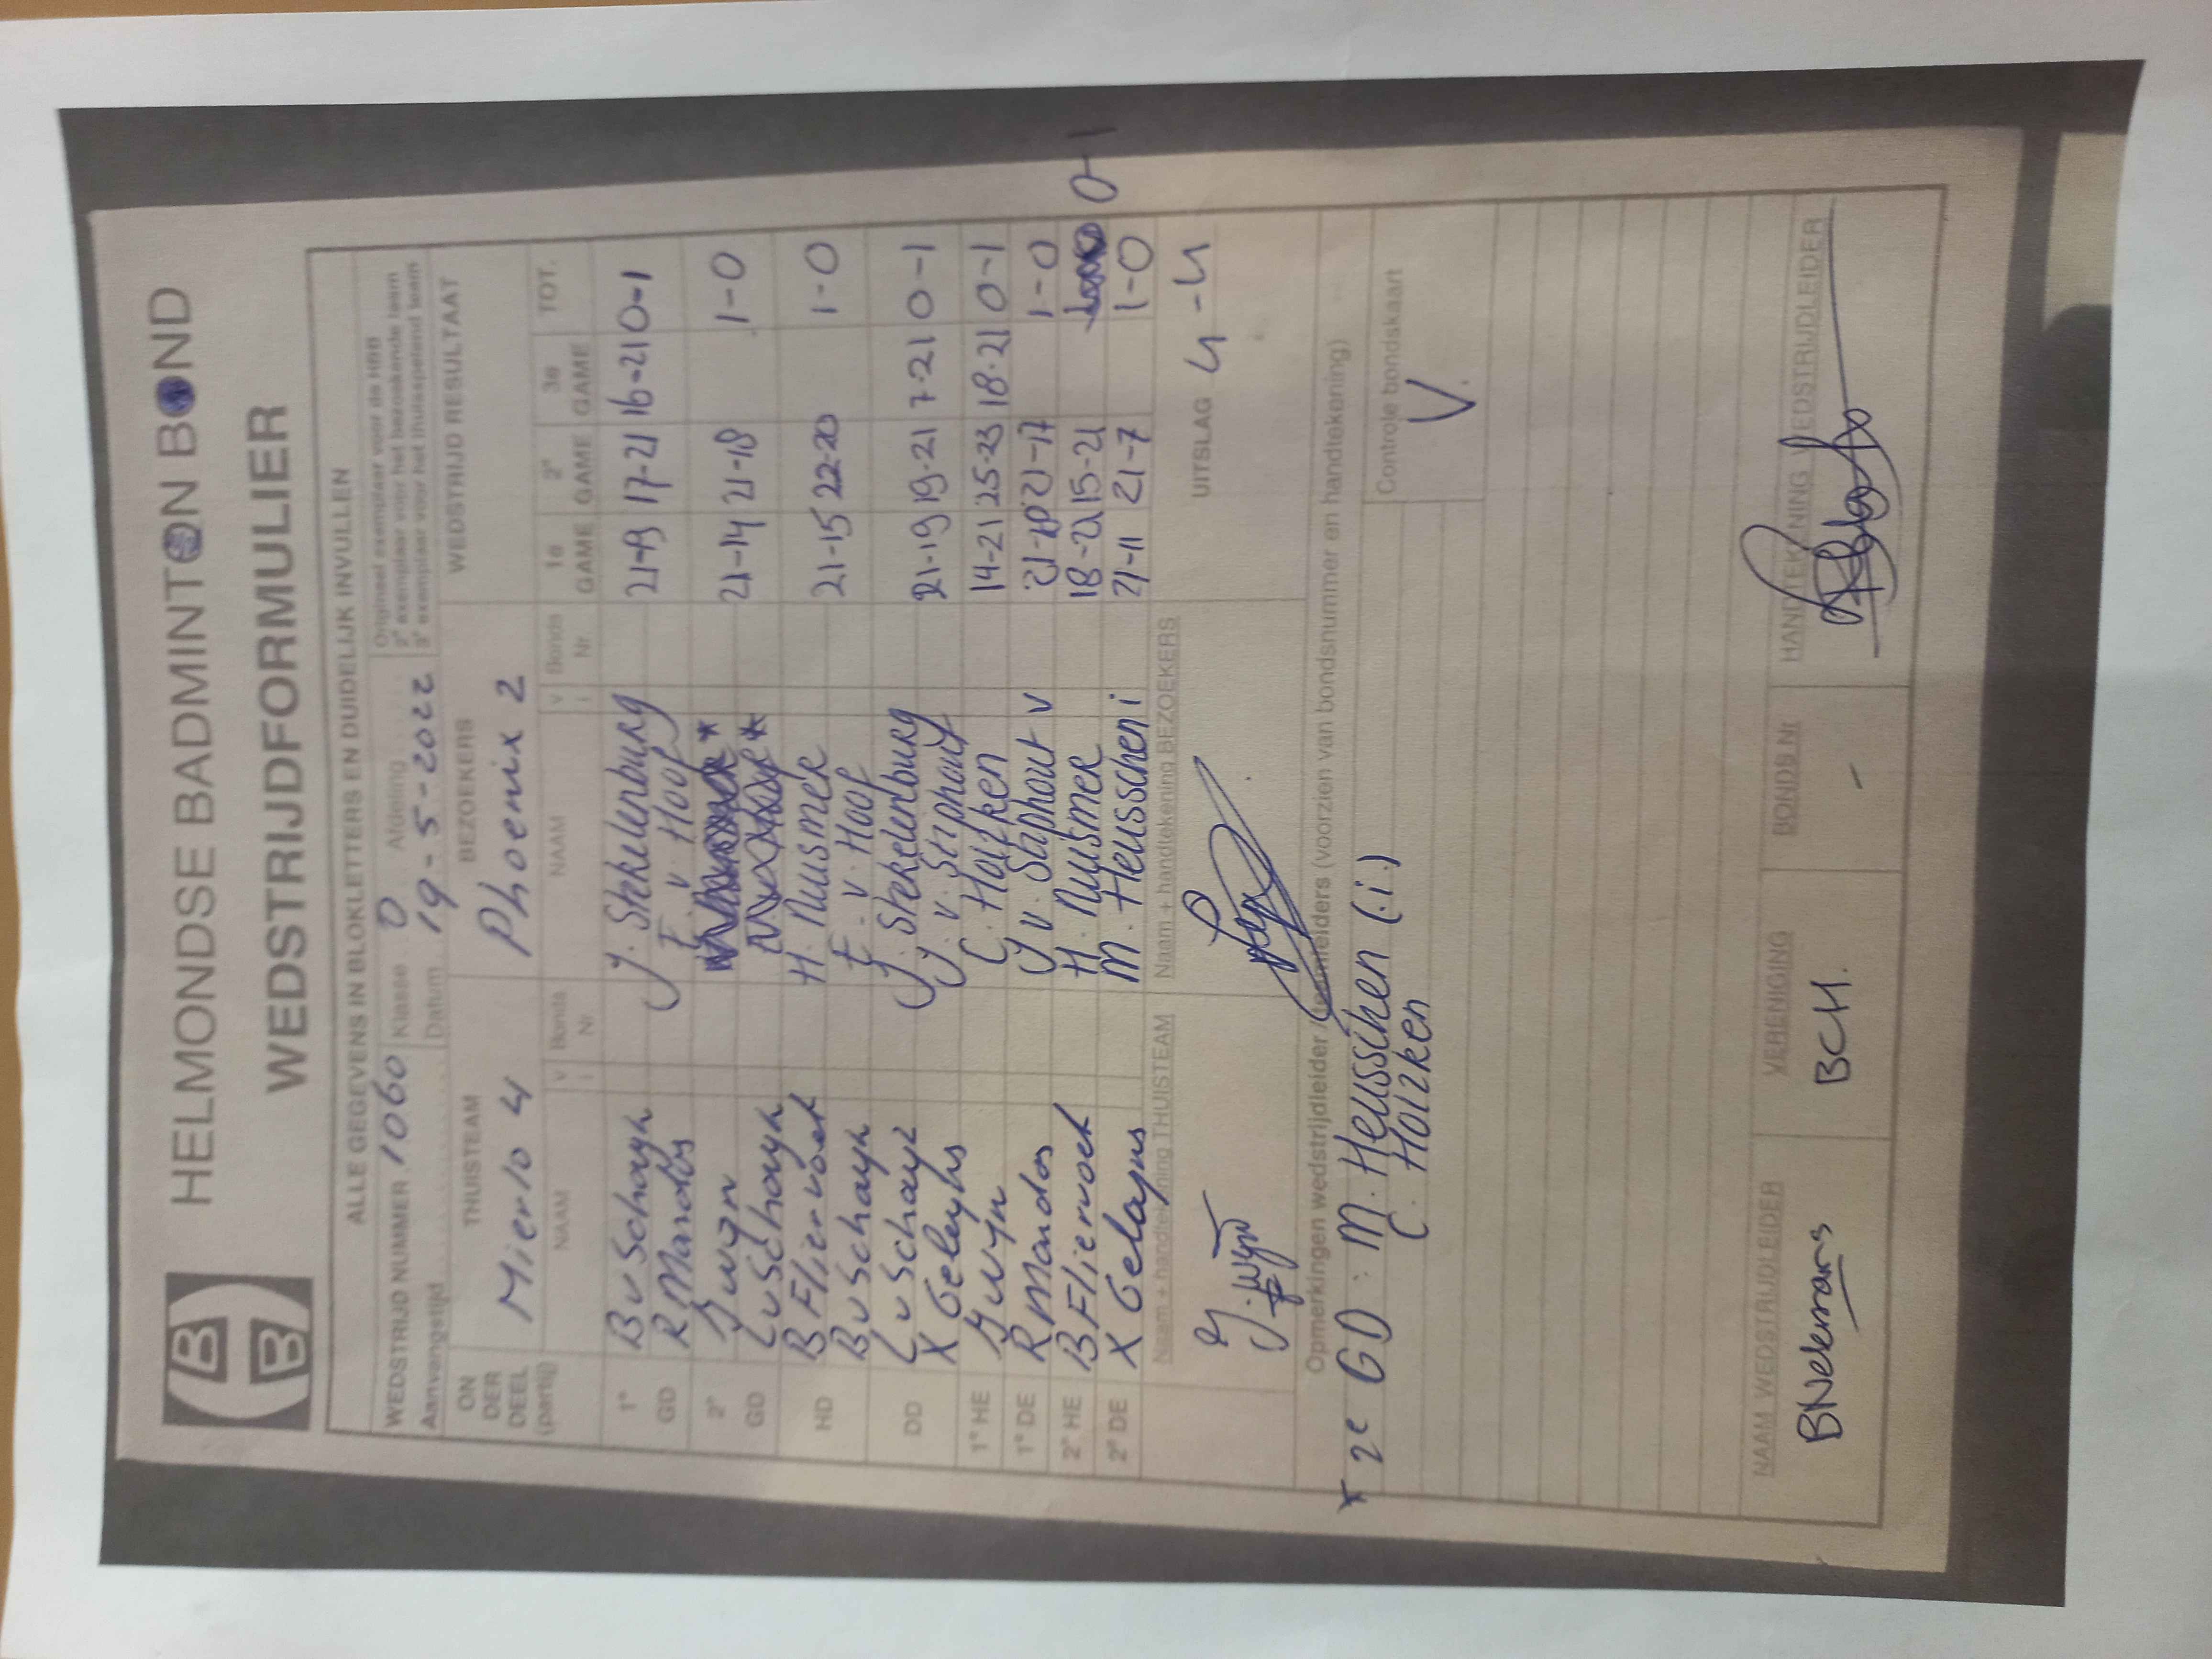 HELMONDSE BADMINTON BOND
WEDSTRIJDFORMULIER
ALLE GEGEVENS IN BLOKLETTERS EN DUIDELIJK INVULLEN
WEDSTRIJD NUMMER 1060 Klasse 0 Afdeling
Aanvangstijd Datum 19-5-2022
Origineel exemplaar voor de HBB
2e exemplaar voor het bezoekende team
3e exemplaar voor het thuisspelend team
ON DER DEEL (partij) THUISTEAM BEZOEKERS WEDSTRIJD RESULTAAT
Mierlo 4 Phoenix 2
NAAM v i Bonds Nr NAAM v i Bonds Nr 1e GAME 2e GAME 3e GAME TOT.
1e B v Schayk J. Stekelenburg 21-19 17-21 16-21 0-1
GD R Mandos E. v. Hoof
2e * 21-14 21-18 1-0
GD L v Schayk *
HD B Fliervoet H. Nuismer 21-15 22-20 1-0
B v Schayk E. v. Hoof
DD L v Schayk J. Stekelenburg 21-19 19-21 7-21 0-1
X J. v. Stiphout
1e HE C. Holzken 14-21 25-23 18-21 0-1
1e DE R Mandos J v. Stiphout v 21-17 1-0
2e HE B Fliervoet H. Nuismer 18-21 15-21 0-1
2e DE X M. Heusschen i 21-11 21-7 1-0
Naam + handtekening THUISTEAM Naam + handtekening BEZOEKERS UITSLAG 4-4
Opmerkingen wedstrijdleider / teamleiders (voorzien van bondsnummer en handtekening)
* 2e GD: M. Heusschen (i.)
C. Holzken
Controle bondskaart
V.
NAAM WEDSTRIJDLEIDER VERENIGING BONDS Nr. HANDTEKENING WEDSTRIJDLEIDER
BCH. -